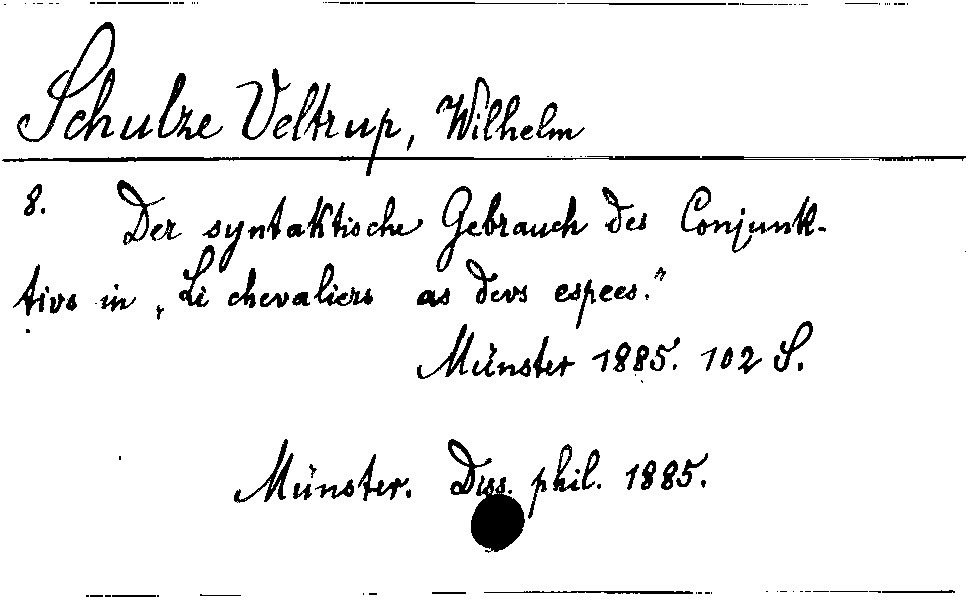 Schulze Veltrup, Wilhelm
8. Der syntaktische Gebrauch des Conjunk-
tivs in „Li chevaliers as devs espees."
Münster 1885. 102 S.
Münster. Diss. phil. 1885.